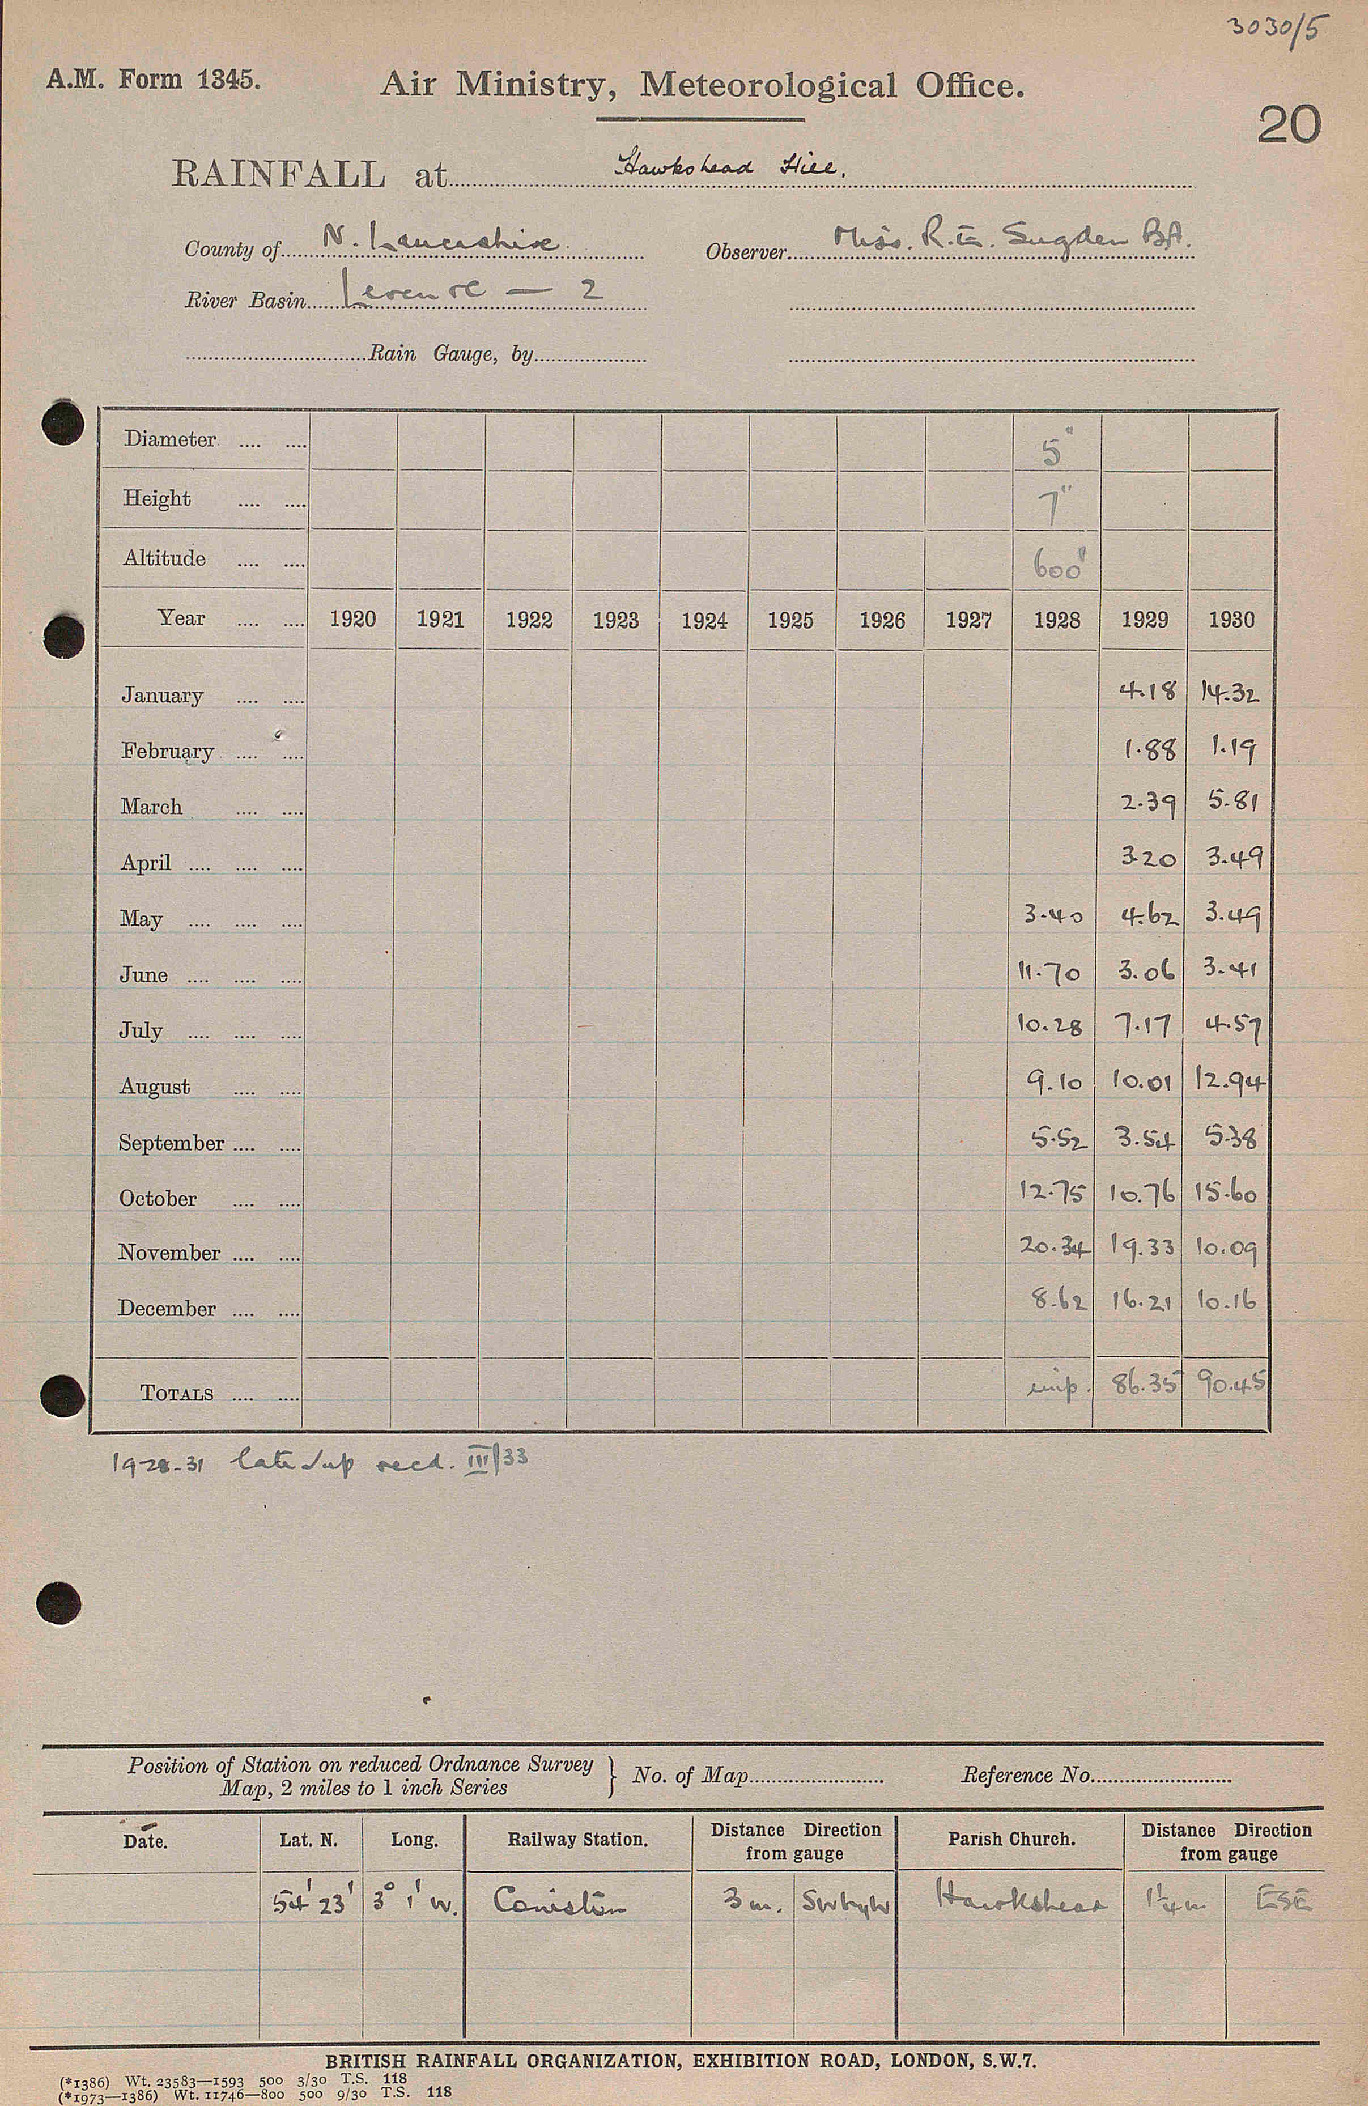 3030/5
A.M. Form 1345. Air Ministry, Meteorological Office.
20
RAINFALL at Hawkshead Hill.
County of N. Lancashire Observer Miss. R.E. Sugden BA.
River Basin 2
Rain Gauge, by
Diameter 5"
Height 7"
Altitude 600'
Year 1920 1921 1922 1923 1924 1925 1926 1927 1928 1929 1930
January 4.18 14.32
February 1.88 1.19
March 2.39 5.81
April 3.20 3.49
May 3.40 4.62 3.49
June 11.70 3.06 3.41
July 10.28 7.17 4.57
August 9.10 10.01 12.94
September 5.52 3.54 5.38
October 12.75 10.76 15.60
November 20.34 19.33 10.09
December 8.62 16.21 10.16
TOTALS imp. 86.35 90.45
1928-31 late recd. III/33
Position of Station on reduced Ordnance Survey
Map, 2 miles to 1 inch Series } No. of Map Reference No.
Date. Lat. N. Long. Railway Station. Distance Direction from gauge Parish Church. Distance Direction from gauge
54' 23' 3° 1' W. Coniston 3 m. SWbyW Hawkshead 1¼ m ESE
BRITISH RAINFALL ORGANIZATION, EXHIBITION ROAD, LONDON, S.W.7.
(*1386) Wt. 23583—1593 500 3/30 T.S. 118
(*1973—1386) Wt. 11746—800 500 9/30 T.S. 118